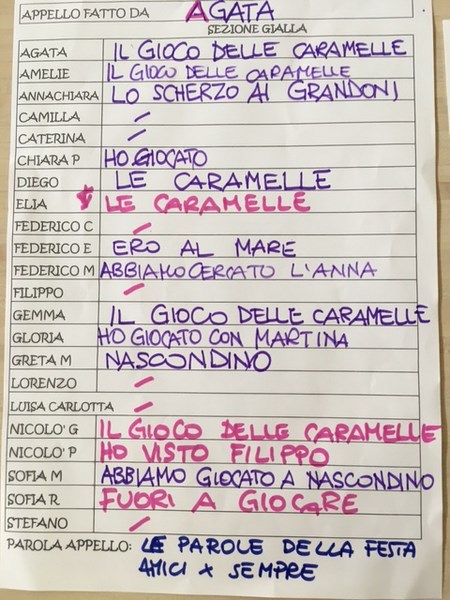 APPELLO FATTO DA AGATA
SEZIONE GIALLA
AGATA IL GIOCO DELLE CARAMELLE
AMELIE IL GIOCO DELLE CARAMELLE
ANNACHIARA LO SCHERZO AI GRANDONI
CAMILLA
CATERINA
CHIARA P HO GIOCATO
DIEGO LE CARAMELLE
ELIA LE CARAMELLE
FEDERICO C
FEDERICO E ERO AL MARE
FEDERICO M ABBIAMO CERCATO L'ANNA
FILIPPO
GEMMA IL GIOCO DELLE CARAMELLE
GLORIA HO GIOCATO CON MARTINA
GRETA M NASCONDINO
LORENZO
LUISA CARLOTTA
NICOLO' G IL GIOCO DELLE CARAMELLE
NICOLO' P HO VISTO FILIPPO
SOFIA M ABBIAMO GIOCATO A NASCONDINO
SOFIA R FUORI A GIOCARE
STEFANO
PAROLA APPELLO: LE PAROLE DELLA FESTA
AMICI x SEMPRE